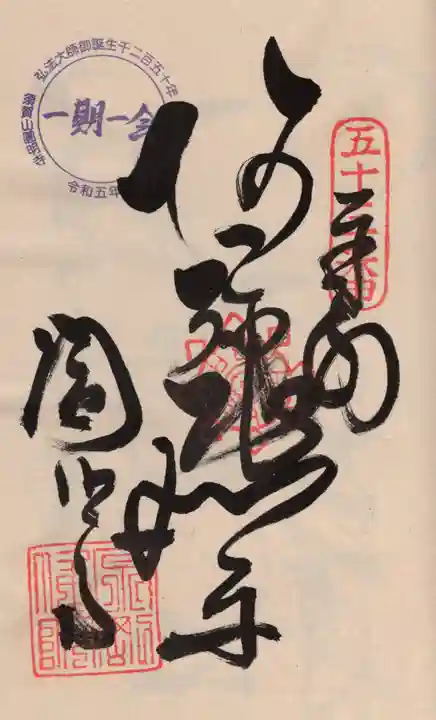 五十三番
奉納
阿弥陀如来
圓明寺
弘法大師御誕生千二百五十年
一期一会
須賀山圓明寺
令和五年